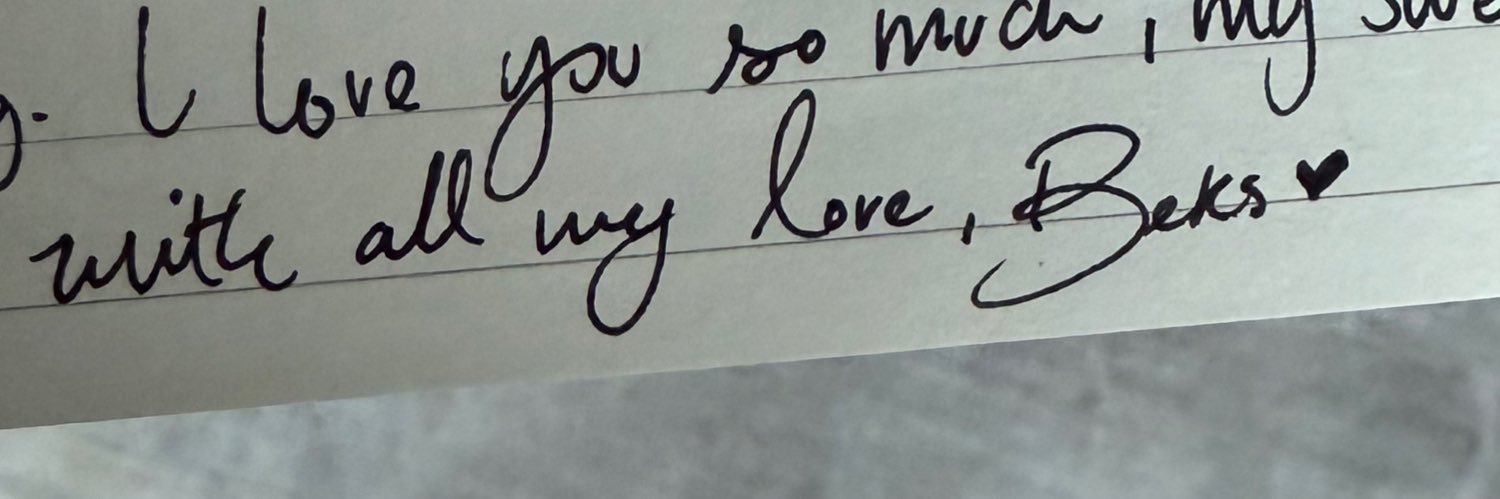 . I love you so much, my
with all my love, Beks ♥